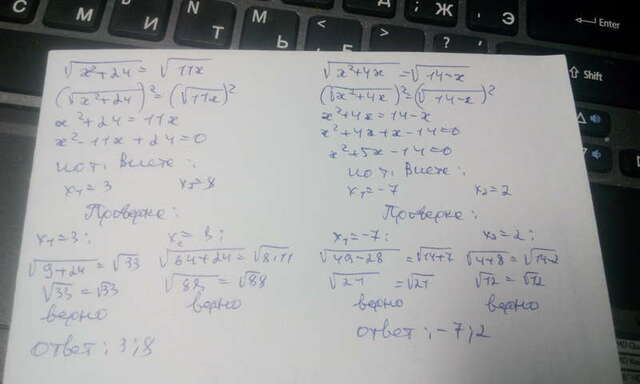 √x²+24 = √11x
(√x²+24)² = (√11x)²
x²+24=11x
x²-11x+24=0
по т. Виета:
x₁=3 x₂=8
Проверка:
x₁=3; x₂=8;
√9+24 = √33 √64+24 = √8·11
√33 = √33 √88 = √88
верно верно
ответ: 3;8
√x²+4x = √14-x
(√x²+4x)² = (√14-x)²
x²+4x=14-x
x²+4x+x-14=0
x²+5x-14=0
по т. Виета:
x₁=-7 x₂=2
Проверка:
x₁=-7; x₂=2;
√49-28 = √14+7 √4+8 = √14-2
√21 = √21 √12 = √12
верно верно
ответ: -7;2
С И Т Ь Ж Э
М
Enter
Shift